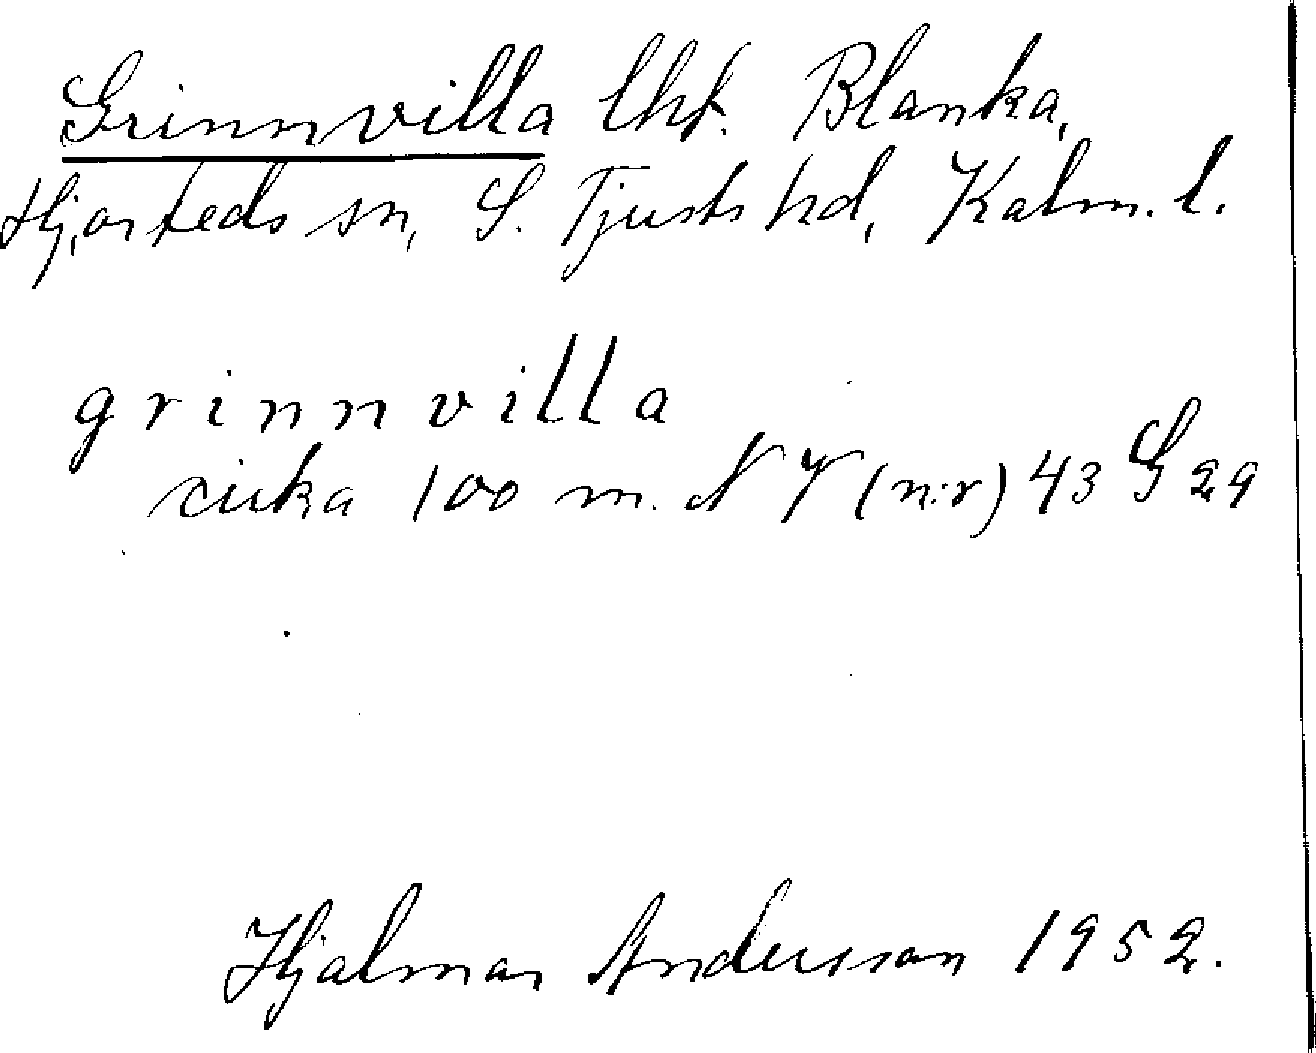 Grinnvilla lht. Blanka,
Hjorteds sn, S. Tjusts hd, Kalm. l.
grinnvilla
cirka 100 m. NV (n:r) 43 S 29
Hjalmar Andersson 1952.